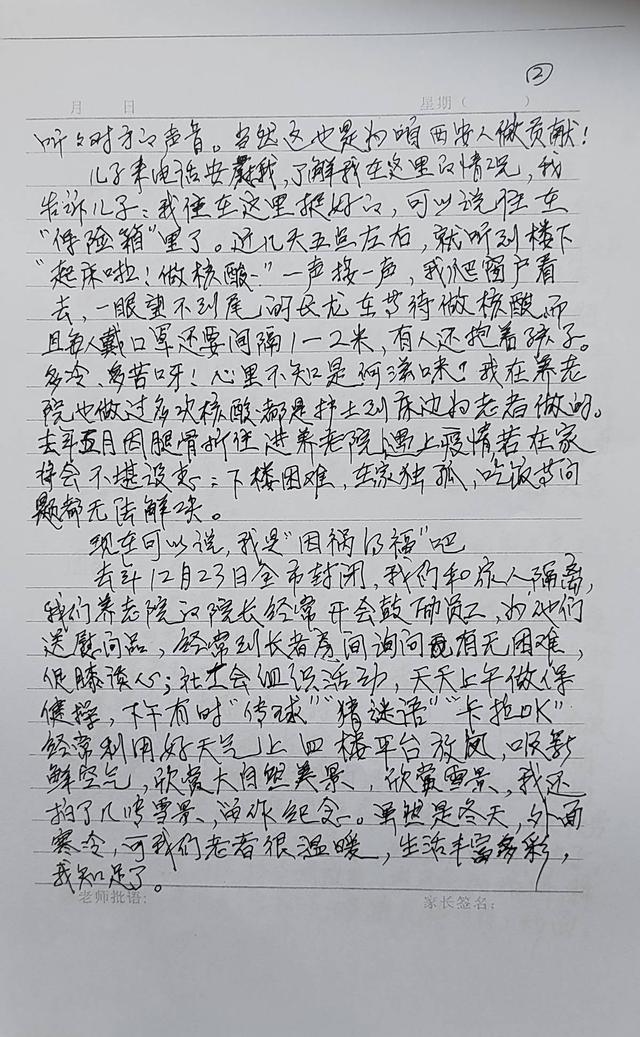 ②
月 日 星期（ ）
听听对方的声音。当然这也是为咱西安人做贡献！
儿子来电话安慰我，了解我在这里的情况，我
告诉儿子：我住在这里挺好的，可以说住在
“保险箱”里了。近几天五点左右，就听到楼下
“起床啦！做核酸…”一声接一声，我爬窗户看
去，一眼望不到尾的长龙在等待做核酸，而
且每人戴口罩还要间隔1—2米，有人还抱着孩子。
多冷、多苦呀！心里不知是何滋味！我在养老
院也做过多次核酸都是护士到床边为老者做的。
去年五月因腿骨折住进养老院，遇上疫情若在家
将会不堪设想：下楼困难，在家独孤，吃饭等问
题都无法解决。
现在可以说，我是“因祸得福”吧
去年12月23日全市封闭，我们和家人隔离，
我们养老院的院长经常开会鼓励员工，为他们
送慰问品，经常到长者房间询问有无困难，
促膝谈心；社工会组织活动，天天上午做保
健操，下午有时“传球”“猜谜语”“卡拉OK”
经常利用好天气上四楼平台放风，吸新
鲜空气，欣赏大自然美景，欣赏雪景，我还
拍了几张雪景，留作纪念。虽然是冬天，外面
寒冷，可我们老者很温暖，生活丰富多彩，
我知足了。
老师批语: 家长签名: